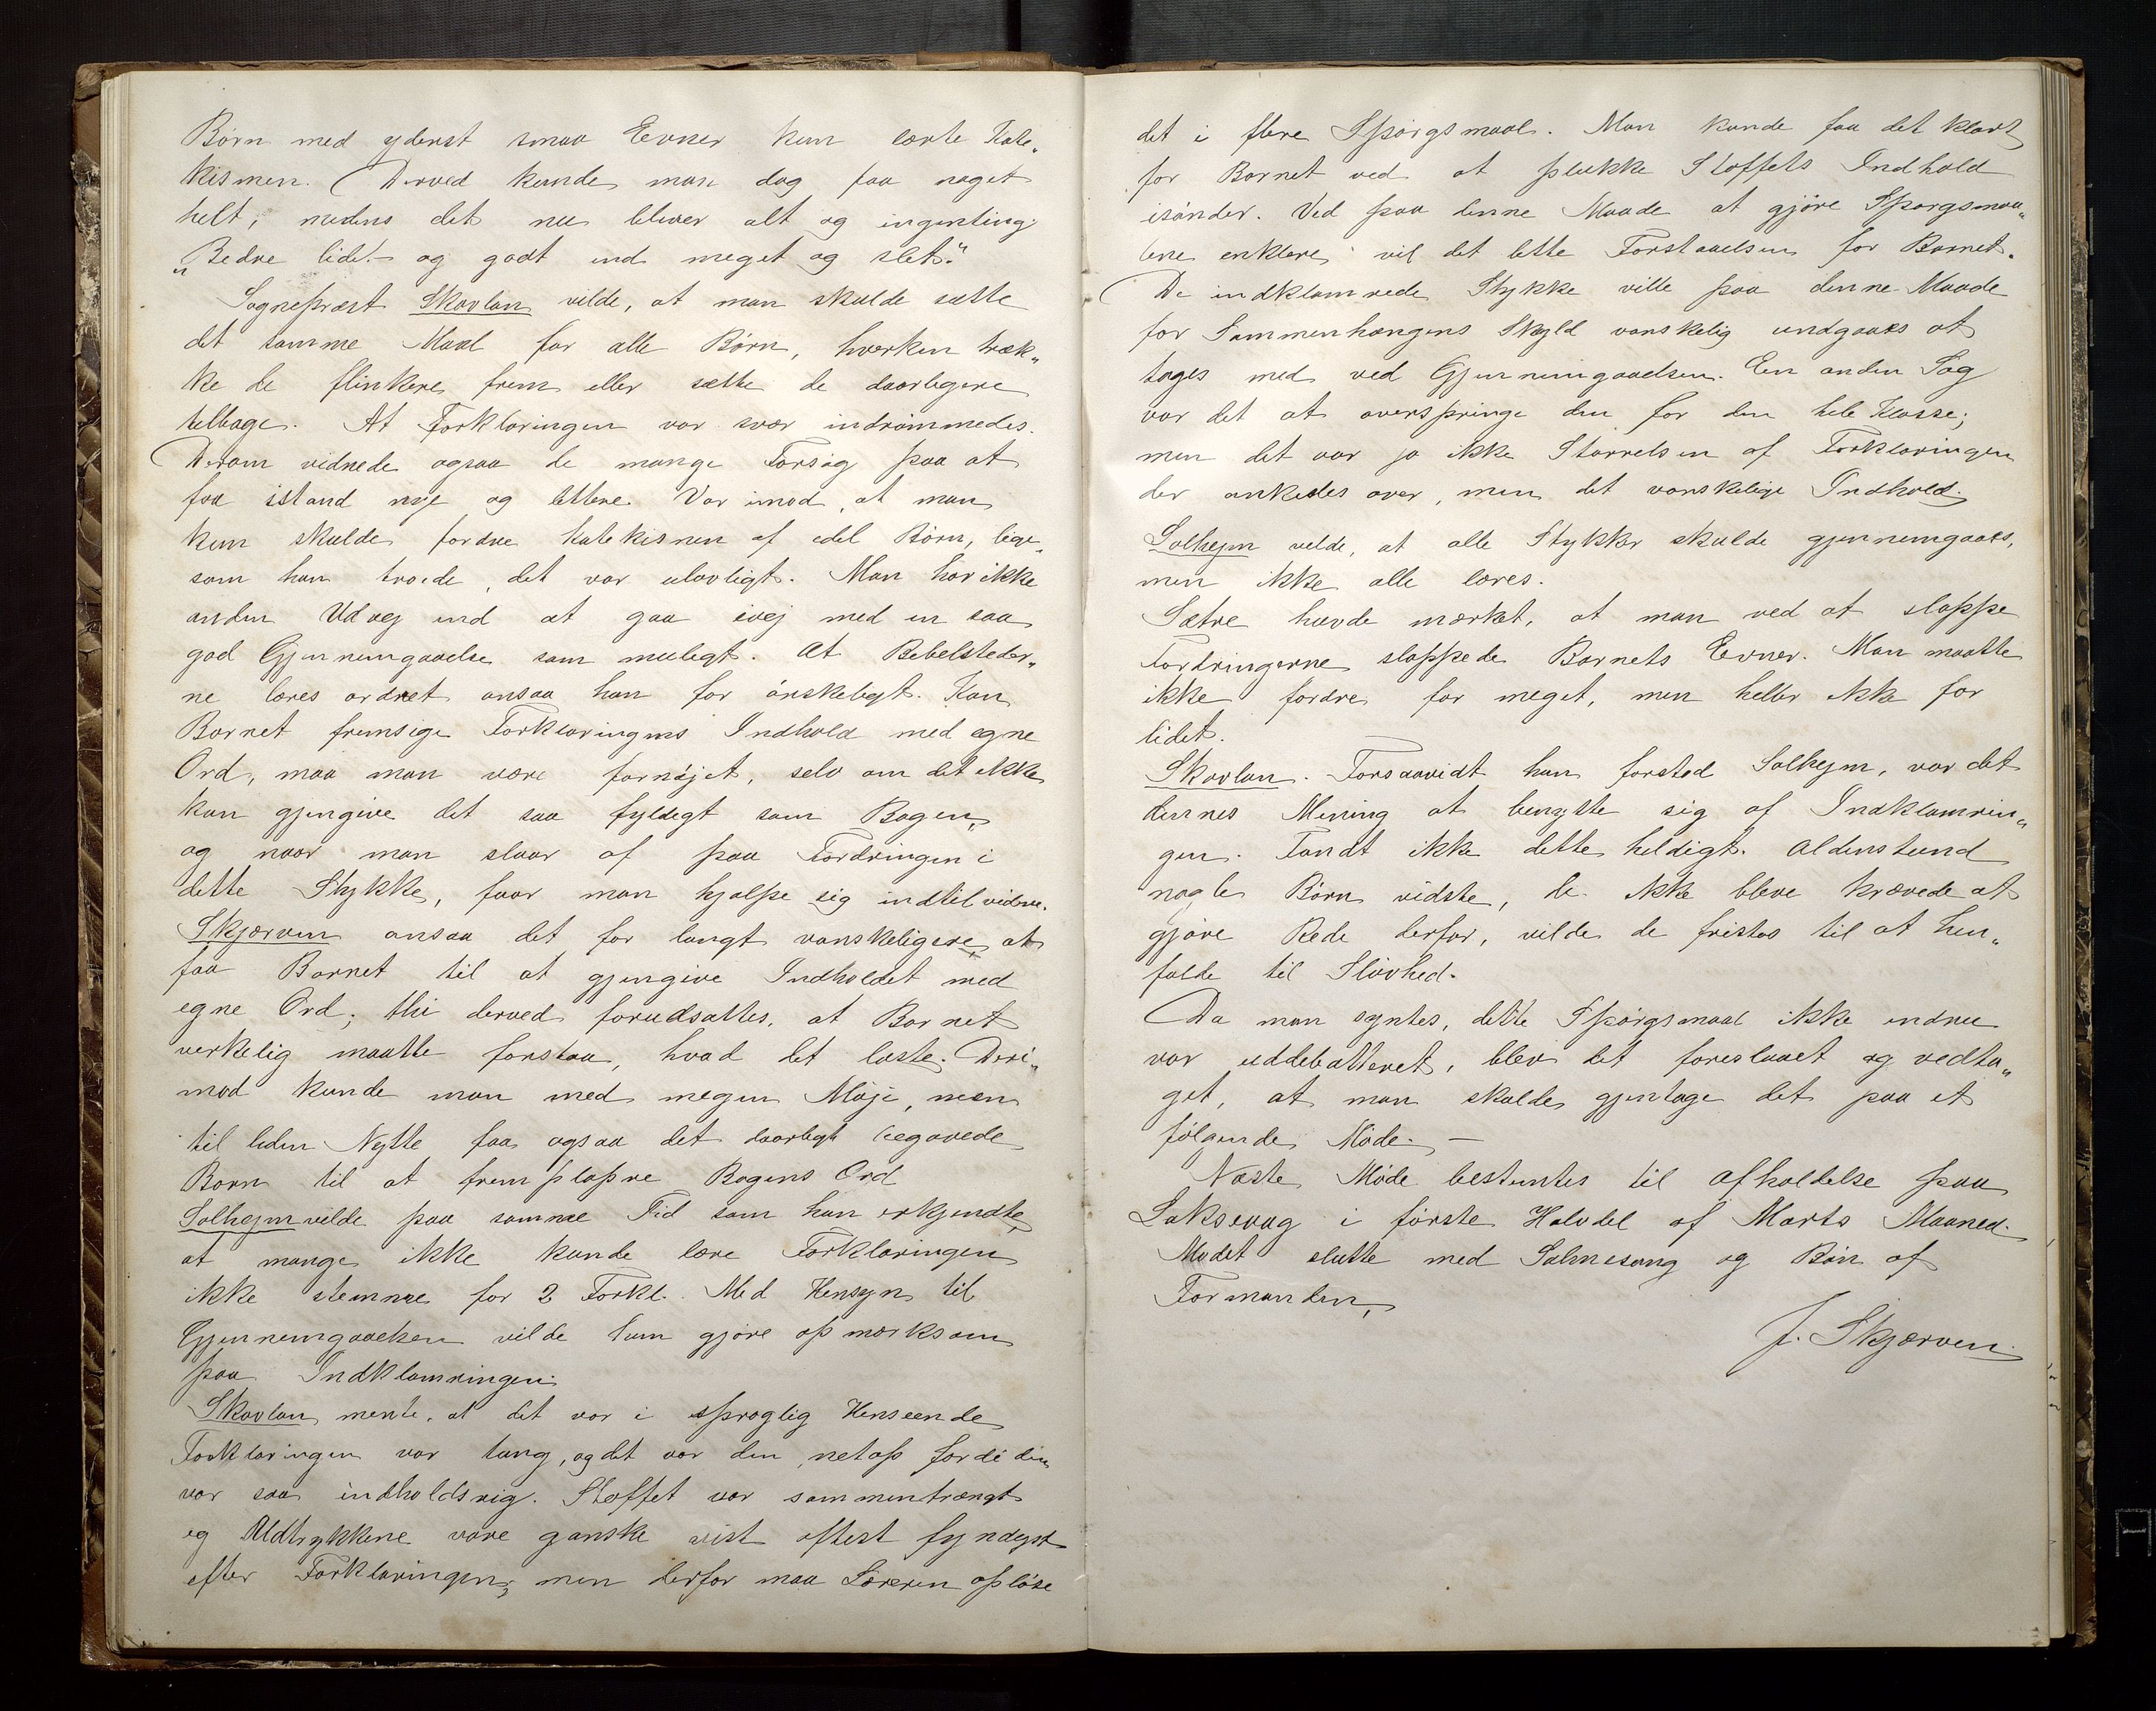 Børn med yderst smaa Evner kun lærte Kate„
kismen. Derved kunde man dog faa noget
helt, medens det nu bliver alt og ingenting.
„Bedre lidet og godt end meget og slet.“
Sogneprest Skavlan vilde, at man skulde sætte
det samme Maal for alle Børn, hverken træk„
ke de flinkere frem eller sætte de daarligere
tilbage. At Forklaringen var svær indrømmedes.
Derom vidnede ogsaa de mange Forsøg paa at
faa istand nye og lettere. Var imod, at man
kun skulde fordre katekismen af edel Børn, lige„
som han troede, det var ulovligt. Man har ikke
anden Udvej end at gaa ivej med en saa
god Gjennemgaaelse som muligt. At Bibelsteder„
ne læres ordret ansaa han for ønskeligt. Kan
Barnet fremsige Forklaringens Indhold med egne
Ord, maa man være fornøjet, selv om det ikke
kan gjengive det saa fyldigt som Bogen,
og naar man slaar af paa Fordringen i
dette Stykke, faar man hjælpe sig indtil videre.
Skjærven ansaa det for langt vanskeligere at
faa Barnet til at gjengive Indholdet med
egne Ord; thi derved forudsattes, at Barnet
virkelig maatte forstaa, hvad det læste. Deri„
mod kunde man med megen Møje, men
til liden Nytte faa ogsaa det daarligt begavede
Barn til at fremplapre Bogens Ord
Solhejm vilde paa samme Tid som han erkjendte,
at mange ikke kunde lære Forklaringen
ikke stemme for 2 Forkl. Med Hensyn til
Gjennemgaaelsen vilde han gjøre opmærksom
paa Indklamringen.
Skavlan mente, at det var i sproglig Henseende
Forklaringen var tung, og det var den netop fordi den
var saa indholdsrig. Stoffet var sammentrængt
og Udtrykkene vare ganske vist oftest fyndigst
efter Forklaringen; men derfor maa Læreren opløse
det i flere Spørgsmaal. Man kunde faa det klart
for Barnet ved at plukke Stoffets Indhold
isønder. Ved paa denne Maade at gjøre Spørgsmaa„
lene enklere vil det lette Forstaaelsen for Barnet.
De indklamrede Stykke ville paa denne Maade
for Sammenhængens Skyld vanskelig undgaaes at
tages med ved Gjennemgaaelsen. En anden Sag
var det at overspringe den for den hele Klasse;
men det var jo ikke Størrelsen af Forklaringen
der ankedes over, men det vanskelige Indhold.
Solhejm vilde, at alle Stykker skulde gjennemgaaes,
men ikke alle læres.
Sætre havde mærket, at man ved at slappe
Fordringerne slappede Barnets Evner. Man maatte
ikke fordre for meget, men heller ikke for
lidet.
Skavlan. Forsaavidt han forstod Solhejm, var det
dennes Mening at benytte sig af Indklamrin„
gen. Fandt ikke dette heldigt. Aldenstund
nogle Børn vidste, de ikke bleve krævede at
gjøre Rede derfor, vilde de fristes til at hen„
falde til Sløvhed.
Da man syntes, dette Spørgsmaal ikke endnu
var uddebatteret, blev det foreslaaet og vedta„
get, at man skulde gjentage det paa et
følgende Møde. —
Næste Møde bestemtes til Afholdelse paa
Laksevaag i første Halvdel af Marts Maaned.
Mødet slutte med Salmesang og Bøn af
Formanden,
J. Skjærven.